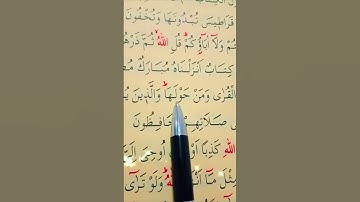 قَرَاطٖيسَ تُبْدُونَهَا وَتُخْفُونَ
وَلَٓا اٰبَٓاؤُ۬كُمْ قُلِ اللّٰهُ ثُمَّ ذَرْهُمْ
كِتَابٌ اَنْزَلْنَاهُ مُبَارَكٌ
الْقُرٰى وَمَنْ حَوْلَهَا وَالَّذٖينَ
صَلَاتِهِمْ يُحَافِظُونَ
اللّٰهِ كَذِبًا اَوْ اُوحِىَ اِلَىَّ
مِثْلَ مَٓا اَنْزَلَ اللّٰهُ وَلَوْ تَرٰٓى